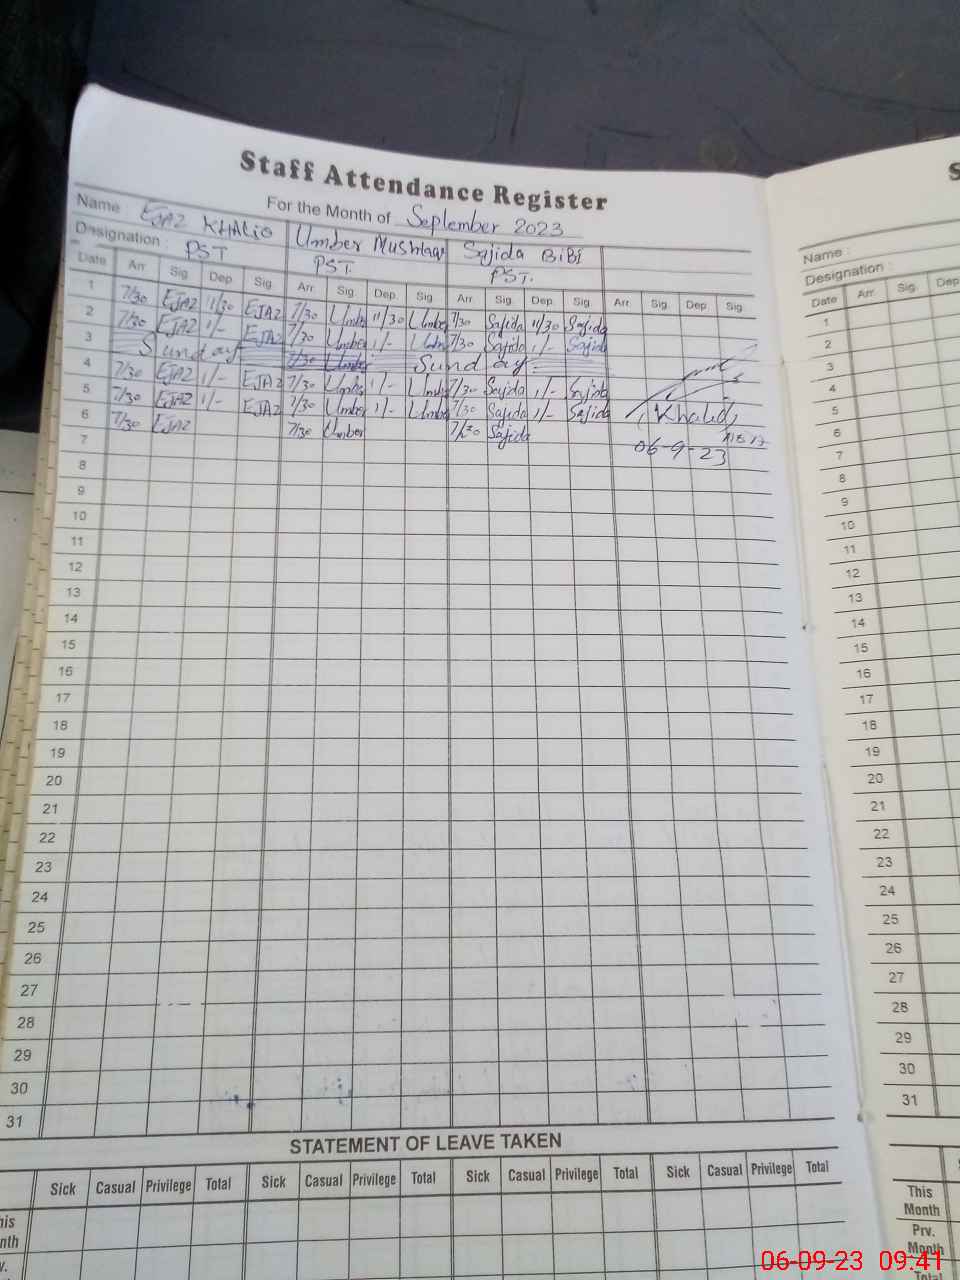 Staff Attendance Register
For the Month of September 2023
Name : EJAZ KHALID Umber Mushtaq Sajida BiBi
Designation : PST PST. PST.
Date Arr. Sig. Dep. Sig. Arr. Sig. Dep. Sig. Arr. Sig. Dep. Sig. Arr. Sig. Dep. Sig.
1 7/30 EJAZ 11/30 EJAZ 7/30 Umber 11/30 Umber 7/30 Sajida 11/30 Sajida
2 7/30 EJAZ 1/- EJAZ 7/30 Umber 1/- Umber 7/30 Sajida 1/- Sajida
3 Sunday 7/30 Umber Sunday
4 7/30 EJAZ 1/- EJAZ 7/30 Umber 1/- Umber 7/30 Sajida 1/- Sajida
5 7/30 EJAZ 1/- EJAZ 7/30 Umber 1/- Umber 7/30 Sajida 1/- Sajida
(Khalid)
6 7/30 EJAZ 7/30 Umber 7/30 Sajida
06-9-23
7
8
9
10
11
12
13
14
15
16
17
18
19
20
21
22
23
24
25
26
27
28
29
30
31
STATEMENT OF LEAVE TAKEN
Sick Casual Privilege Total Sick Casual Privilege Total Sick Casual Privilege Total Sick Casual Privilege Total
his
nth
v.
S
Name :
Designation :
Date Arr. Sig. Dep.
1
2
3
4
5
6
7
8
9
10
11
12
13
14
15
16
17
18
19
20
21
22
23
24
25
26
27
28
29
30
31
This
Month
Prv.
Month
Total
06-09-23 09:41